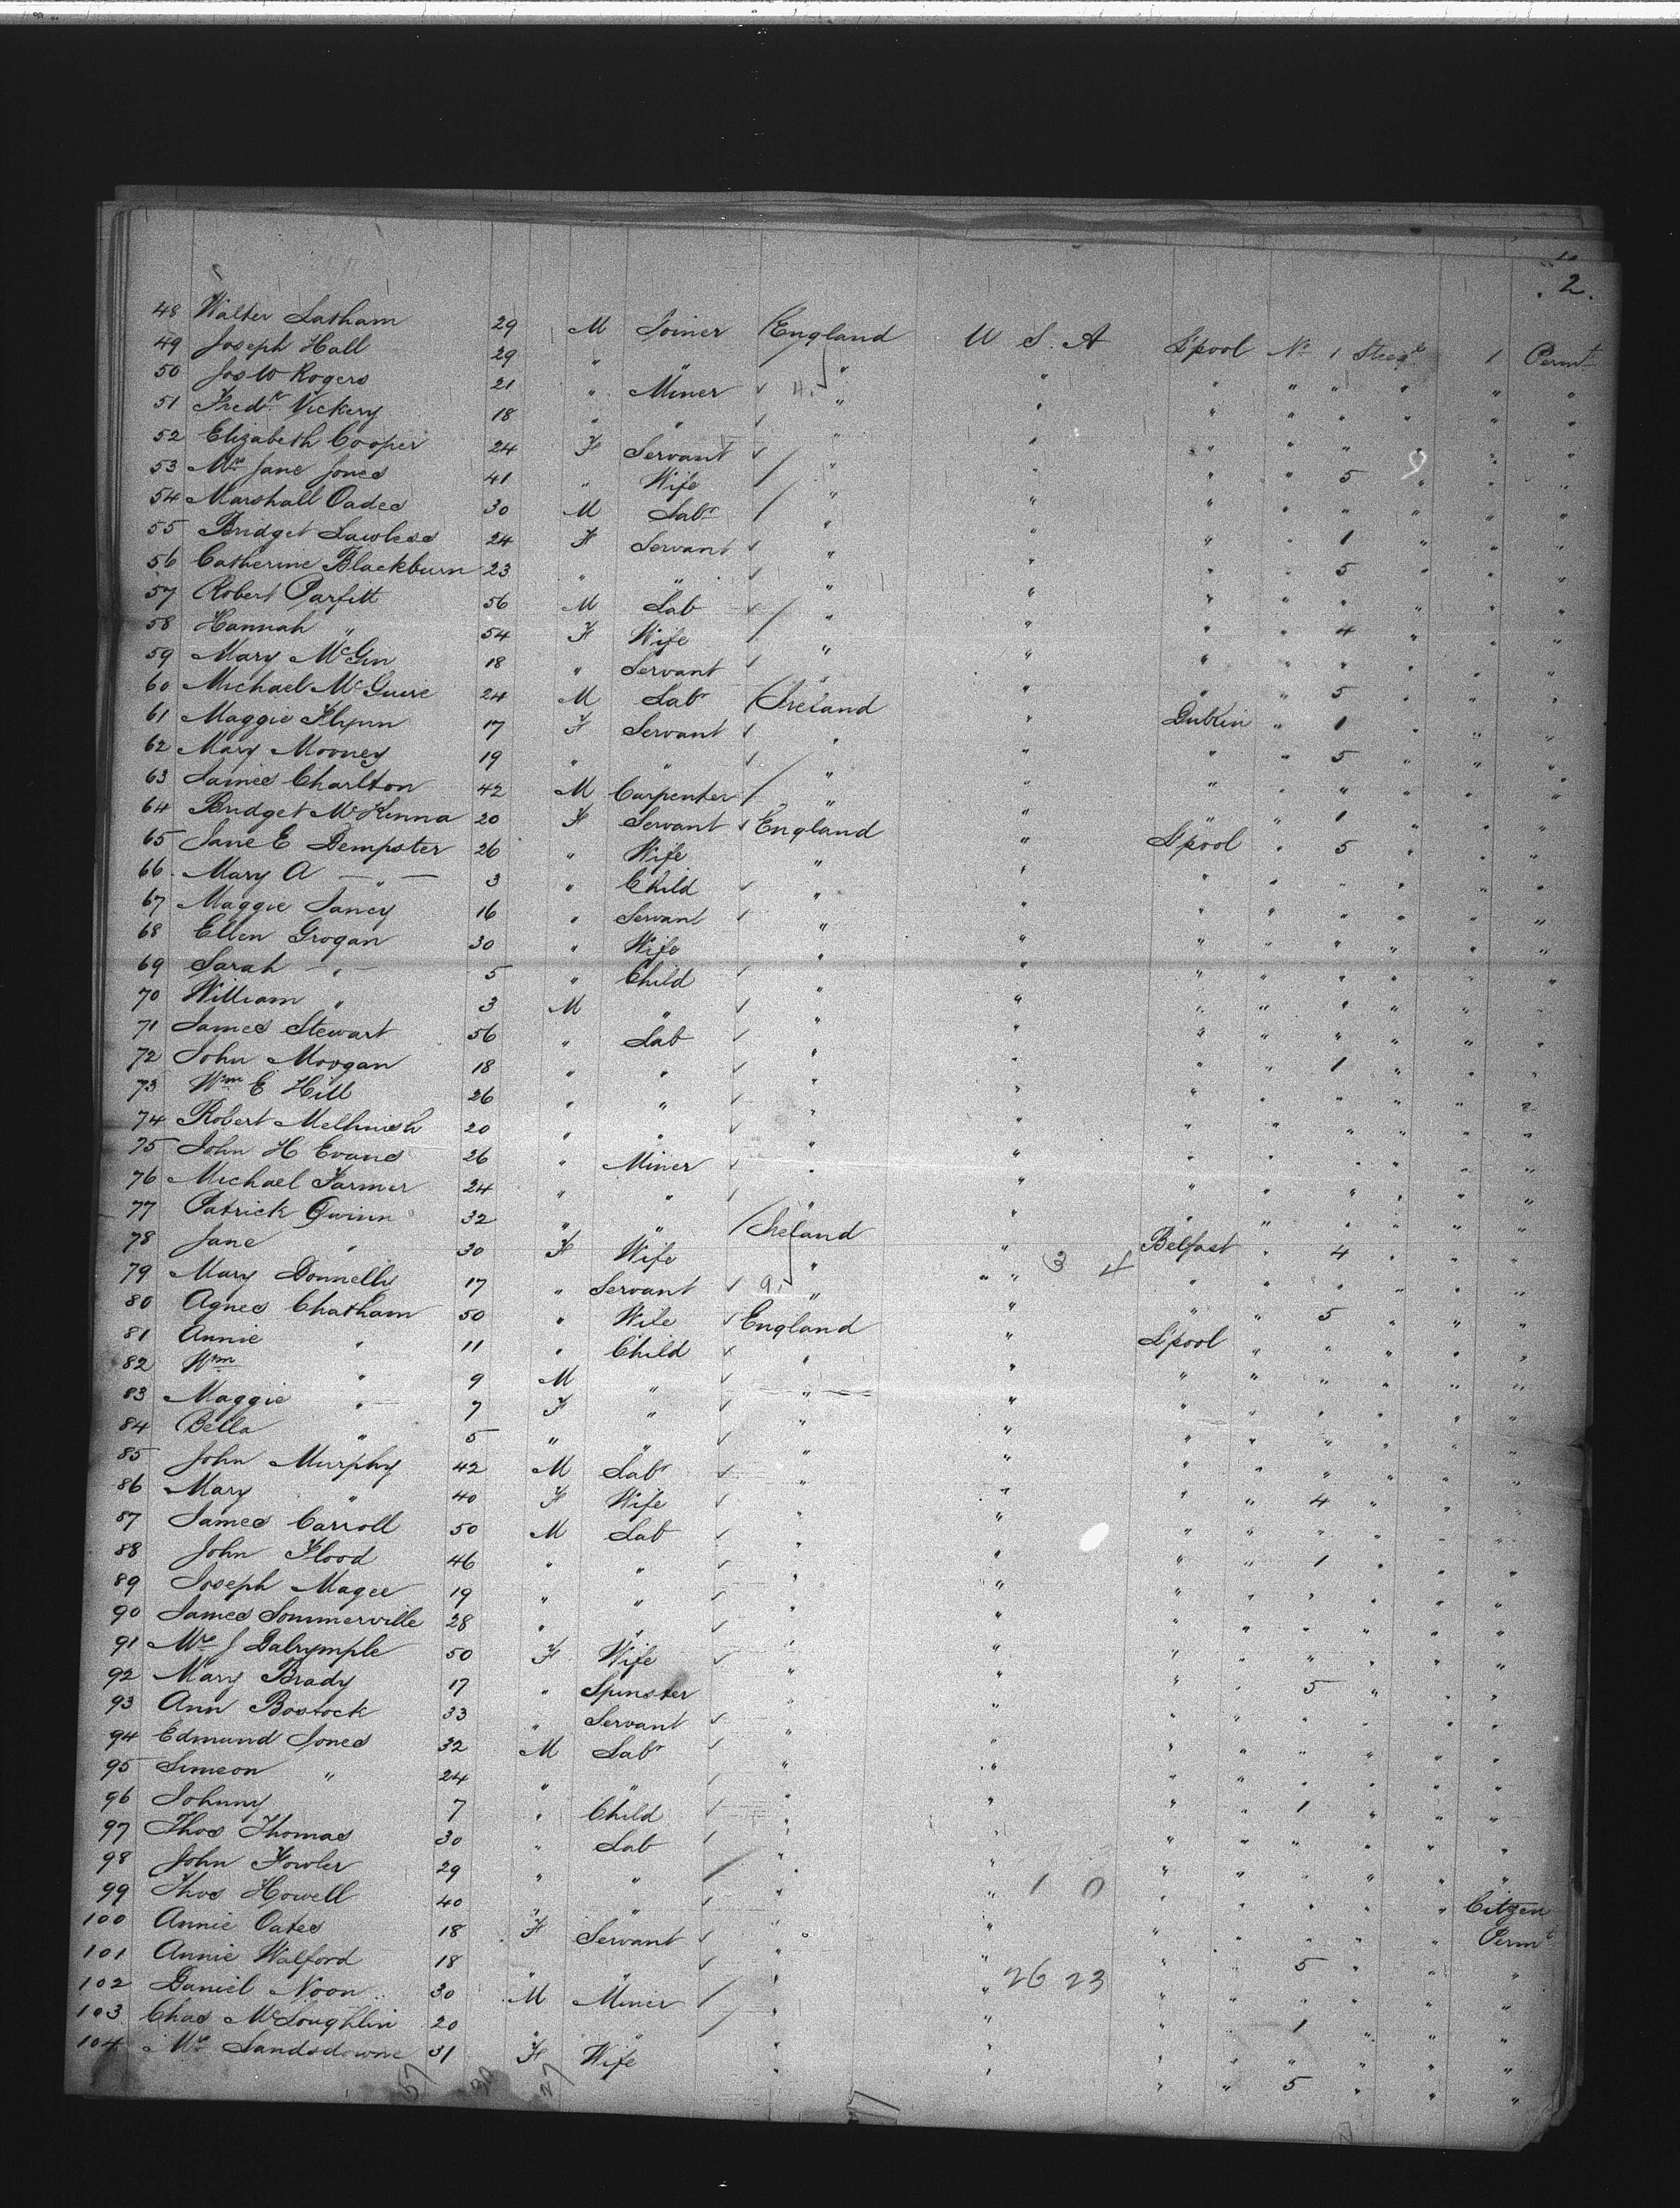 2.
48 Walter Latham 29 M Joiner / England U S. A L'pool No 1 Steege 1 Permt
49 Joseph Hall 29 " " " " " " " " " "
50 Jos W Rogers 21 " Miner " " " " " " " "
51 Fredk Vickery 18 " " " " " " " " " "
52 Elizabeth Cooper 24 F Servant " " " " 5 " " "
53 Mrs Jane Jones 41 " Wife " " " " " " " "
54 Marshall Oades 30 M Labr " " " " 1 " " "
55 Bridget Lawless 24 F Servant " " " " 5 " " "
56 Catherine Blackburn 23 " " " " " " " " " "
57 Robert Parfitt 56 M Lab " " " " 4 " " "
58 Hannah " 54 F Wife " " " " " " " "
59 Mary McGin 18 " Servant " " " " 5 " " "
60 Michael McGuire 24 M Labr / Ireland " Dublin " 1 " " "
61 Maggie Flynn 17 F Servant " " " " 5 " " "
62 Mary Mooney 19 " " " " " " " " " "
63 James Charlton 42 M Carpenter " " " " 1 " " "
64 Bridget McKenna 20 F Servant England " L'pool " 5 " " "
65 Jane E Dempster 26 " Wife " " " " " " " "
66 Mary A " 3 " Child " " " " " " " "
67 Maggie Janey 16 " Servant " " " " " " " "
68 Ellen Grogan 30 " Wife " " " " " " " "
69 Sarah " 5 " Child " " " " " " " "
70 William " 3 M " " " " " " " " "
71 James Stewart 56 " Lab " " " " 1 " " "
72 John Moogan 18 " " " " " " " " " "
73 Wm E Hill 26 " " " " " " " " " "
74 Robert Melhuish 20 " " " " " " " " " "
75 John H Evans 26 " Miner " " " " " " " "
76 Michael Farmer 24 " " " " " " " " " "
77 Patrick Quinn 32 " " / Ireland " Belfast " 4 " " "
78 Jane " 30 F Wife " " 3 4 " " " " " "
79 Mary Donnelly 17 " Servant 9 " " " " 5 " " "
80 Agnes Chatham 50 " Wife England " L'pool " " " " "
81 Annie " 11 " Child " " " " " " " "
82 Wm " 9 M " " " " " " " " "
83 Maggie " 7 F " " " " " " " " "
84 Bella " 5 " " " " " " " " " "
85 John Murphy 42 M Labr " " " " 4 " " "
86 Mary " 40 F Wife " " " " " " " "
87 James Carroll 50 M Lab " " " " 1 " " "
88 John Flood 46 " " " " " " " " " "
89 Joseph Magee 19 " " " " " " " " " "
90 James Sommerville 28 " " " " " " " " " "
91 Mrs J Dalrymple 50 F Wife " " " " 5 " " "
92 Mary Brady 17 " Spinster " " " " " " " "
93 Ann Bostock 33 " Servant " " " " " " " "
94 Edmund Jones 32 M Labr " " " " " " " "
95 Simeon " 24 " " " " " " 1 " " "
96 Johnny 7 " Child " " " " " " " "
97 Thos Thomas 30 " Lab " " " " " " " "
98 John Fowler 29 " " " " 1 0 " " " " " Citzen
99 Thos Howell 40 " " " " " " " " " Permt
100 Annie Oates 18 F Servant " " " " 5 " " "
101 Annie Walford 18 " " " " 26 23 " " " " " "
102 Daniel Noon 30 M Miner " " " " 1 " " "
103 Chas McLoughlin 20 " " " " " " " " " "
104 Mrs Sandsdowne 31 F Wife " " " " 5 " " "
57 30 27